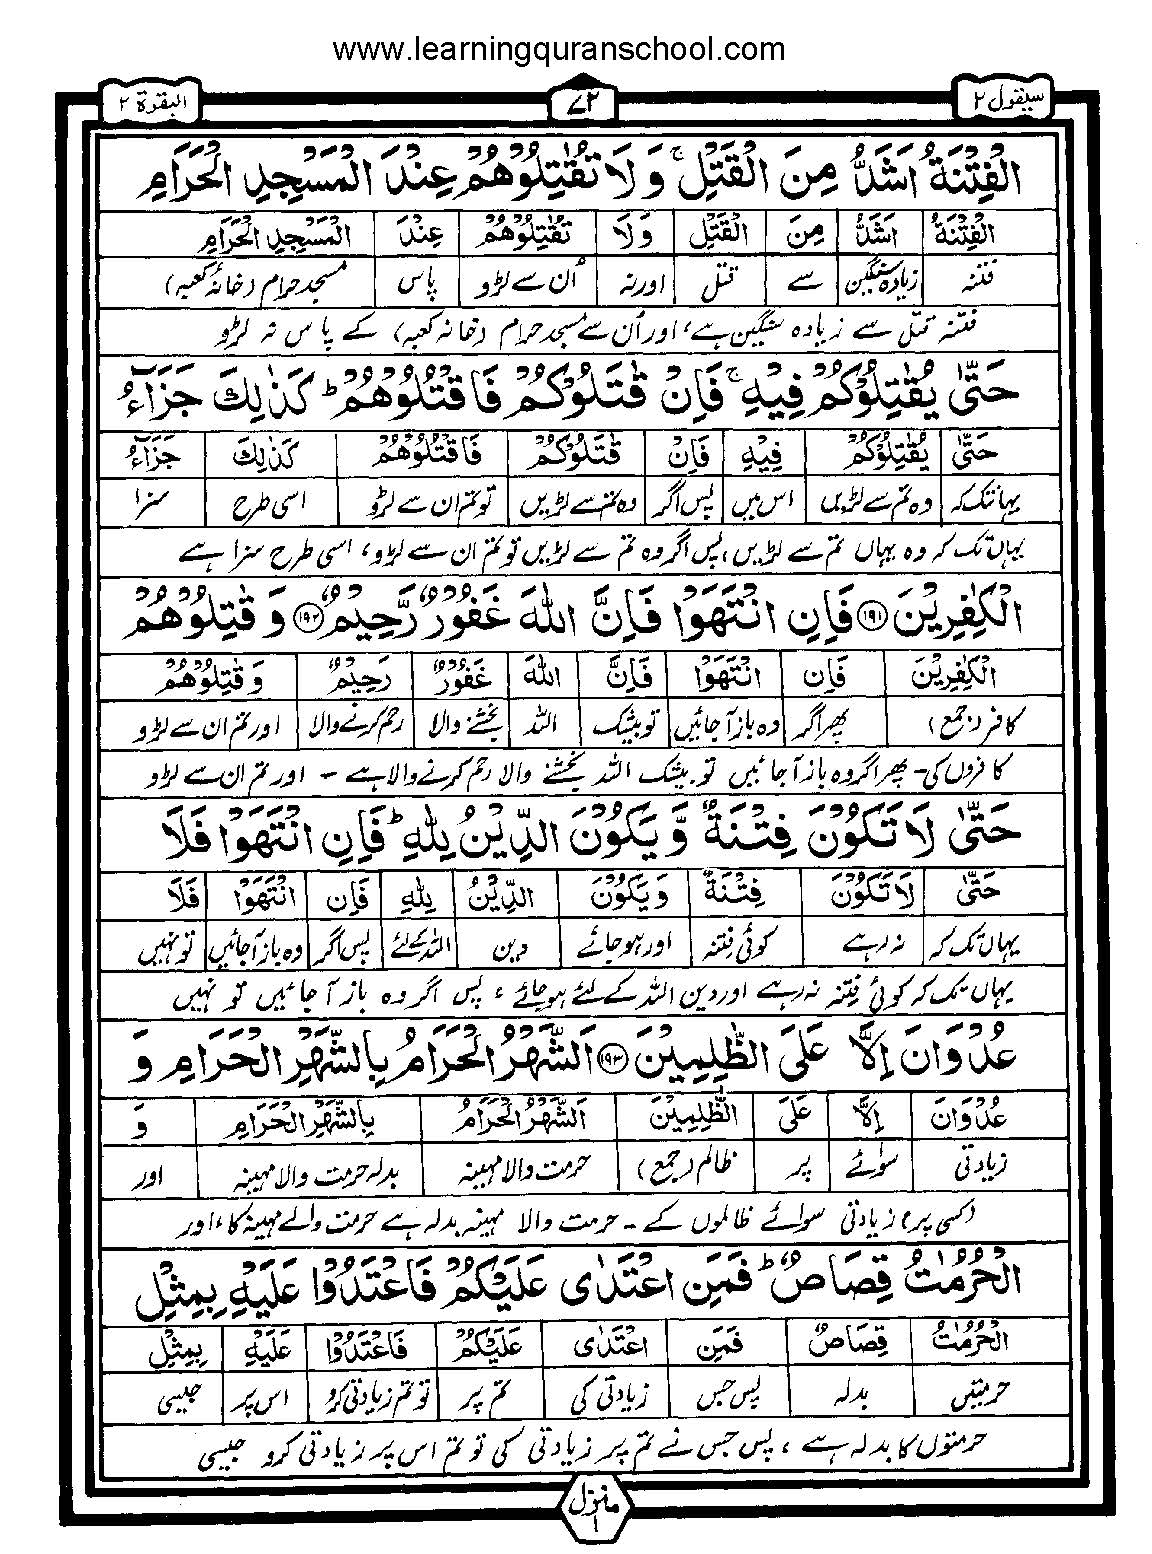 www.learningquranschool.com
سیقول ٢ ٧٢ البقرة ٢
الْفِتْنَةُ اَشَدُّ مِنَ الْقَتْلِ ۚ وَلَا تُقٰتِلُوْهُمْ عِنْدَ الْمَسْجِدِ الْحَرَامِ
الْفِتْنَةُ اَشَدُّ مِنَ الْقَتْلِ وَلَا تُقٰتِلُوْهُمْ عِنْدَ الْمَسْجِدِ الْحَرَامِ
فتنہ زیادہ سنگین سے قتل اور نہ اُن سے لڑو پاس مسجد حرام (خانۂ کعبہ)
فتنہ قتل سے زیادہ سنگین ہے، اور اُن سے مسجد حرام (خانہ کعبہ) کے پاس نہ لڑو
حَتّٰى يُقٰتِلُوْكُمْ فِيْهِ ۚ فَاِنْ قٰتَلُوْكُمْ فَاقْتُلُوْهُمْ ؕ كَذٰلِكَ جَزَآءُ
حَتّٰى يُقٰتِلُوْكُمْ فِيْهِ فَاِنْ قٰتَلُوْكُمْ فَاقْتُلُوْهُمْ كَذٰلِكَ جَزَآءُ
یہانتک کہ وہ تم سے لڑیں اس میں پس اگر وہ تم سے لڑیں تو تم ان سے لڑو اسی طرح سزا
یہاں تک کہ وہ یہاں تم سے لڑیں، پس اگر وہ تم سے لڑیں تو تم ان سے لڑو، اسی طرح سزا ہے
الْكٰفِرِيْنَ ١٩١ فَاِنِ انْتَهَوْا فَاِنَّ اللّٰهَ غَفُوْرٌ رَّحِيْمٌ ١٩٢ وَقٰتِلُوْهُمْ
الْكٰفِرِيْنَ فَاِنِ انْتَهَوْا فَاِنَّ اللّٰهَ غَفُوْرٌ رَحِيْمٌ وَقٰتِلُوْهُمْ
کافر (جمع) پھر اگر وہ باز آجائیں تو بیشک اللہ بخشنے والا رحم کرنے والا اور تم ان سے لڑو
کافروں کی۔ پھر اگر وہ باز آجائیں تو بیشک اللہ بخشنے والا رحم کرنے والا ہے ۔ اور تم ان سے لڑو
حَتّٰى لَا تَكُوْنَ فِتْنَةٌ وَّيَكُوْنَ الدِّيْنُ لِلّٰهِ ؕ فَاِنِ انْتَهَوْا فَلَا
حَتّٰى لَا تَكُوْنَ فِتْنَةٌ وَيَكُوْنَ الدِّيْنُ لِلّٰهِ فَاِنِ انْتَهَوْا فَلَا
یہاں تک کہ نہ رہے کوئی فتنہ اور ہو جائے دین اللہ کے لئے پس اگر وہ باز آجائیں تو نہیں
یہاں تک کہ کوئی فتنہ نہ رہے اور دین اللہ کے لئے ہو جائے ، پس اگر وہ باز آجائیں تو نہیں
عُدْوَانَ اِلَّا عَلَى الظّٰلِمِيْنَ ١٩٣ اَلشَّهْرُ الْحَرَامُ بِالشَّهْرِ الْحَرَامِ وَ
عُدْوَانَ اِلَّا عَلَى الظّٰلِمِيْنَ اَلشَّهْرُ الْحَرَامُ بِالشَّهْرِ الْحَرَامِ وَ
زیادتی سوائے پر ظالم (جمع) حرمت والا مہینہ بدلہ حرمت والا مہینہ اور
(کسی پر) زیادتی سوائے ظالموں کے ۔ حرمت والا مہینہ بدلہ ہے حرمت والے مہینہ کا، اور
الْحُرُمٰتُ قِصَاصٌ ؕ فَمَنِ اعْتَدٰى عَلَيْكُمْ فَاعْتَدُوْا عَلَيْهِ بِمِثْلِ
الْحُرُمٰتُ قِصَاصٌ فَمَنِ اعْتَدٰى عَلَيْكُمْ فَاعْتَدُوْا عَلَيْهِ بِمِثْلِ
حرمتیں بدلہ پس جس زیادتی کی تم پر تو تم زیادتی کرو اس پر جیسی
حرمتوں کا بدلہ ہے ، پس جس نے تم پر زیادتی کی تو تم اس پر زیادتی کرو جیسی
منزل ١